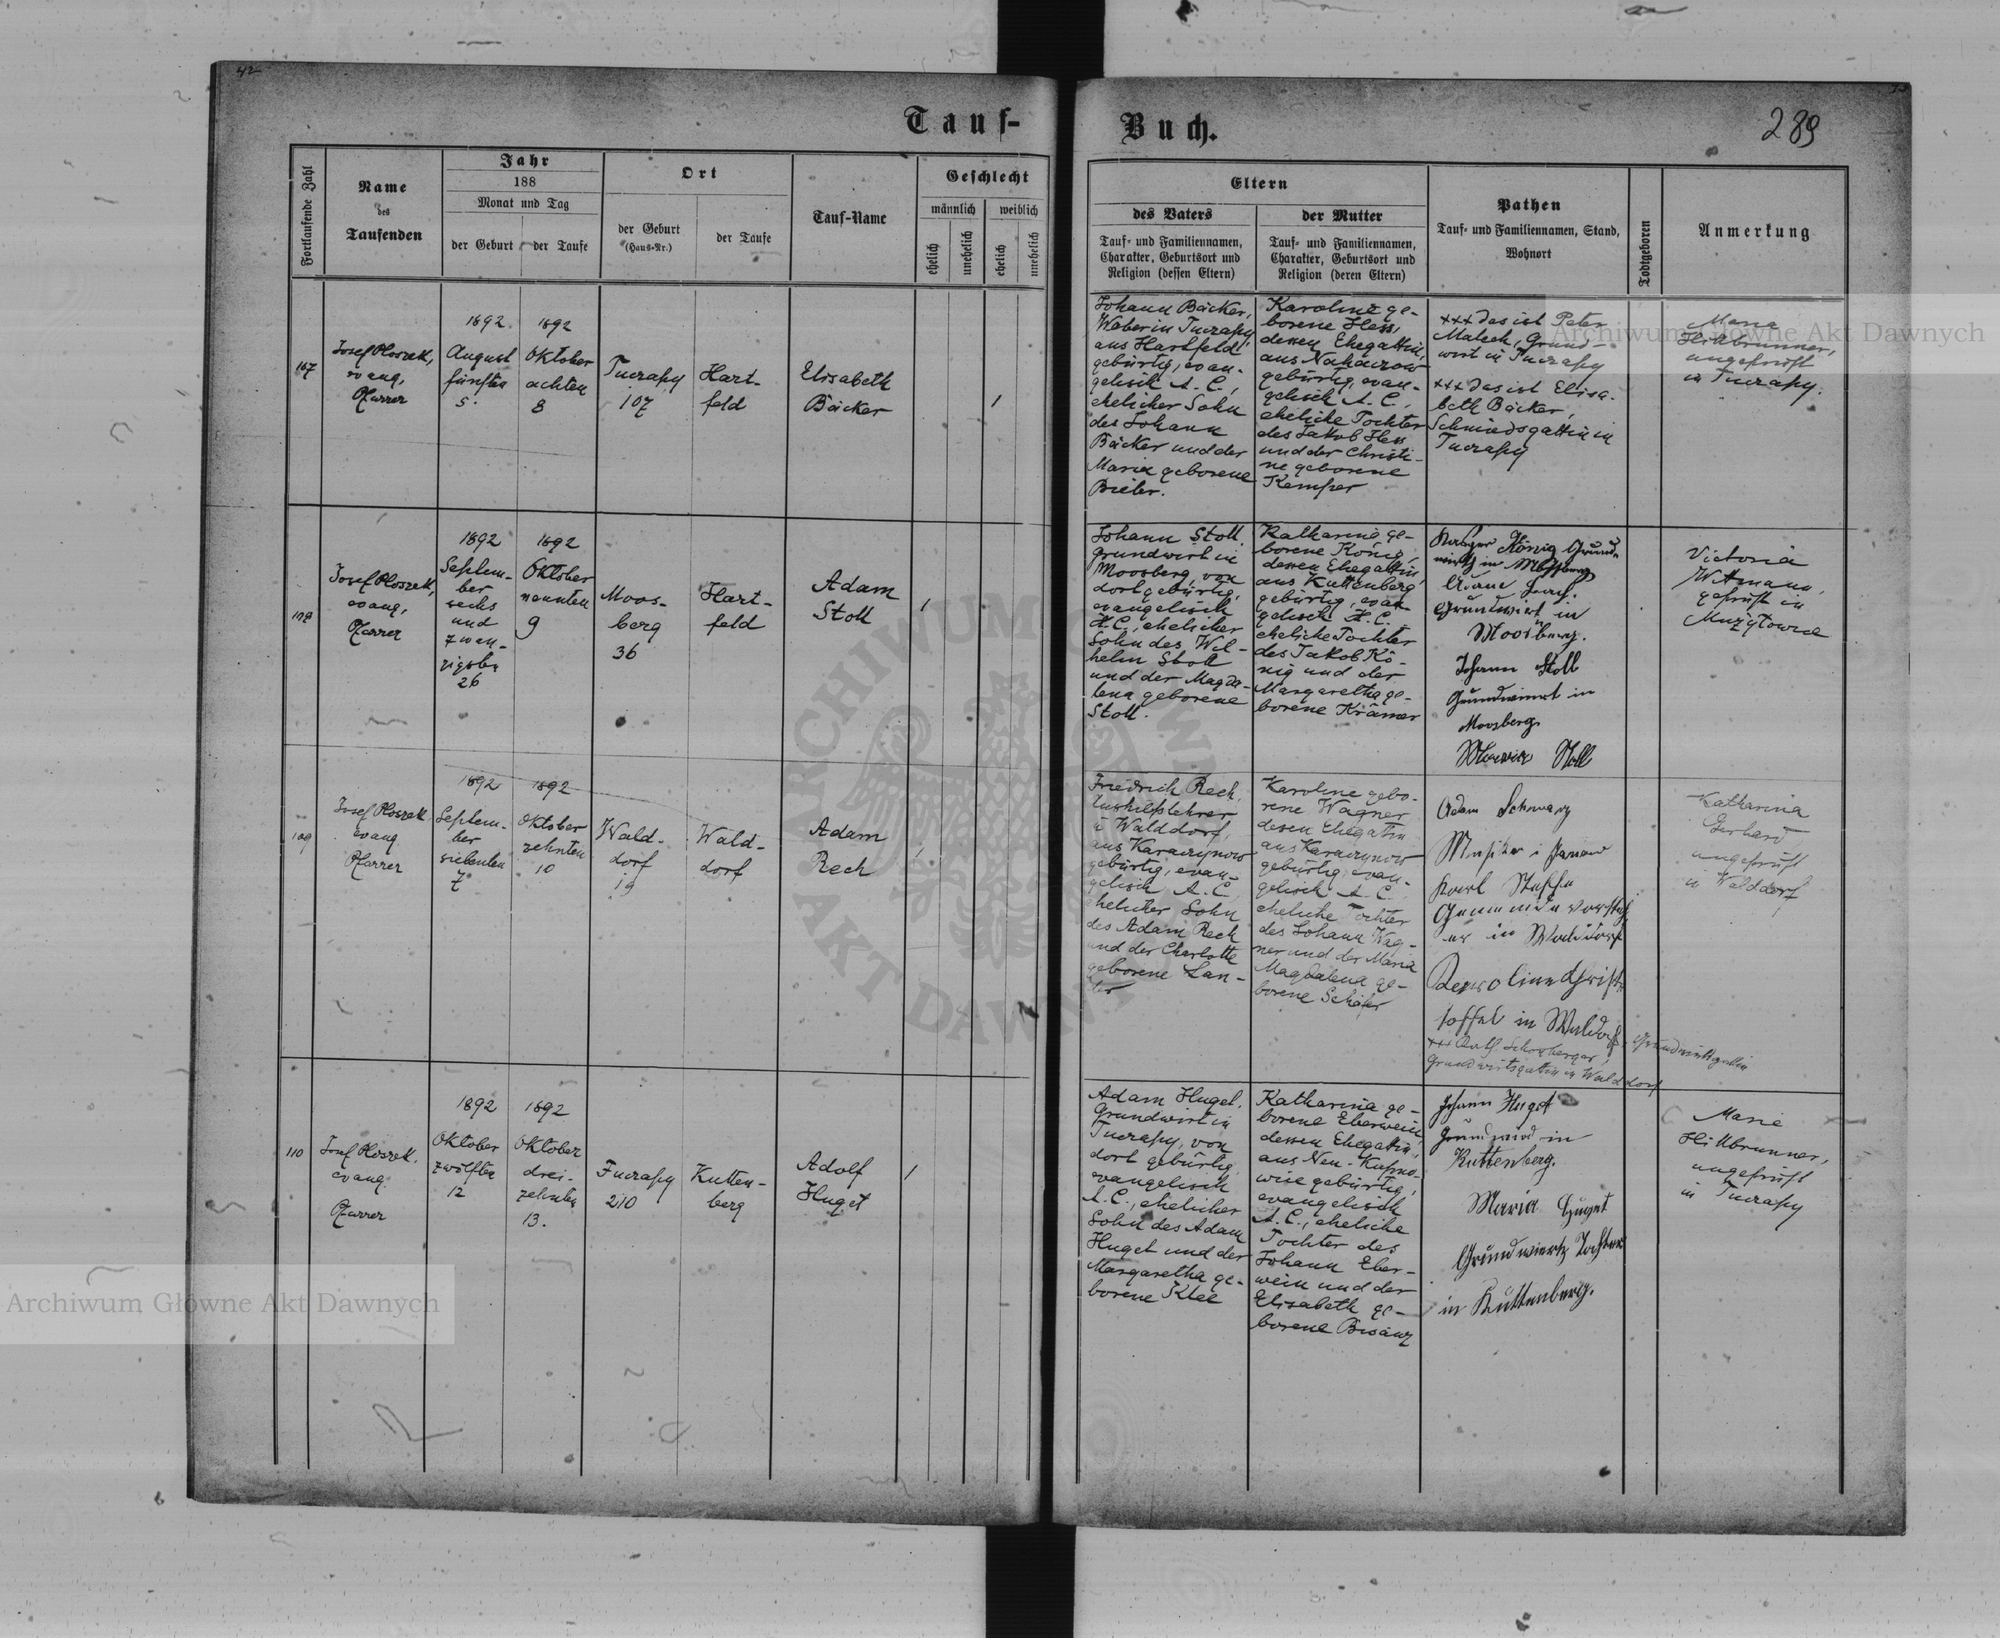 42
Tauf-
Buch.
289
Fortlaufende Zahl
Name
des
Taufenden
Jahr
188
Monat und Tag
der Geburt
der Taufe
Ort
der Geburt
(Haus-Nr.)
der Taufe
Tauf-Name
Geschlecht
männlich
weiblich
ehelich
unehelich
ehelich
unehelich
Eltern
des Vaters
Tauf- und Familiennamen,
Charakter, Geburtsort und
Religion (dessen Eltern)
der Mutter
Tauf- und Familiennamen,
Charakter, Geburtsort und
Religion (deren Eltern)
Pathen
Tauf- und Familiennamen, Stand,
Wohnort
Todtgeboren
Anmerkung
107
Josef Ploszek,
evang,
Pfarrer
1892
August
fünften
5.
1892
Oktober
achten
8
Tuczapy
107
Hart-
feld
Elisabeth
Bäcker
1
Johann Bäcker,
Weber in Tuczapy,
aus Hartfeld
gebürtig, evan-
gelisch A. C.,
ehelicher Sohn
des Johann
Bäcker und der
Maria geborene
Bieler.
Karoline ge-
borene Hess,
dessen Ehegattin,
aus Nahaczow
gebürtig, evan-
gelisch A. C.,
eheliche Tochter
des Jakob Hess
und der Christi-
ne geborene
Kemper
+++ das ist Peter
Malech, Grund-
wirt in Tuczapy
+++ das ist Elisa-
beth Bäcker,
Schmiedsgattin in
Tuczapy
Maria
Hillbrunner,
ungeprüft
in Tuczapy.
108
Josef Ploszek,
evang,
Pfarrer
1892
Septem-
ber
sechs
und
zwan-
zigsten
26
1892
Oktober
neunten
9
Moos-
berg
36
Hart-
feld
Adam
Stoll
1
Johann Stoll,
Grundwirt in
Moosberg, von
dort gebürtig,
evangelisch
H. C., ehelicher
Sohn des Wil-
helm Stoll
und der Magda-
lena geborene
Stoll.
Katharina ge-
borene König,
dessen Ehegattin,
aus Kuttenberg
gebürtig, evan-
gelisch H. C.
eheliche Tochter
des Jakob Kö-
nig und der
Margaretha ge-
borene Krämer
König Grund-
in
Grundwirt in
Moosberg.
Johann Stoll
Grundwirt in
Moosberg
Stoll
Victoria
Wittmann,
geprüft in
Muzylowice
109
Josef Ploszek
evang
Pfarrer
1892
Septem-
ber
siebenten
7
1892
Oktober
zehnten
10
Wald-
dorf
19
Wald-
dorf
Adam
Rech
1
Friedrich Rech,
Aushilfslehrer
in Walddorf,
aus Karaczynow
gebürtig, evan-
gelisch A. C.
ehelicher Sohn
des Adam Rech
und der Charlotte
geborene Lan-
Karoline gebo-
rene Wagner
dessen Ehegattin
aus Karaczynow
gebürtig, evan-
gelisch A. C.,
eheliche Tochter
des Johann Wag-
ner und der Maria
Magdalena ge-
borene Schäfer
Adam Schwarz
Musiker in Janow
Karl
Gemeindevorsteh-
er in Walddorf
Karoline Christ-
toffel in Waldorf Grundwirtsgattin
Grundwirtsgattin in Walddorf
Katharina
Gerhard
ungeprüft
in Walddorf
110
Josef Ploszek,
evang.
Pfarrer
1892
Oktober
zwölften
12
1892
Oktober
drei-
zehnten
13.
Tuczapy
210
Kutten-
berg
Adolf
Huget
1
Adam Huget,
Grundwirt in
Tuczapy, von
dort gebürtig,
evangelisch
A. C., ehelicher
Sohn des Adam
Huget und der
Margaretha ge-
borene Klee
Katharina ge-
borene Eberwein,
dessen Ehegattin,
aus Neu-Kupno-
wice gebürtig,
evangelisch
A. C., eheliche
Tochter des
Johann Eber-
wein und der
Elisabeth ge-
borene Bisanz
Johann Huget
in
Kuttenberg.
Maria Huget
Grundwiertz Tochter
in Kuttenberg.
Marie
Hillbrunner,
ungeprüft
in Tuczapy
Archiwum Główne Akt Dawnych
Archiwum Główne Akt Dawnych
ARCHIWUM GŁÓWNE
AKT DAWNYCH